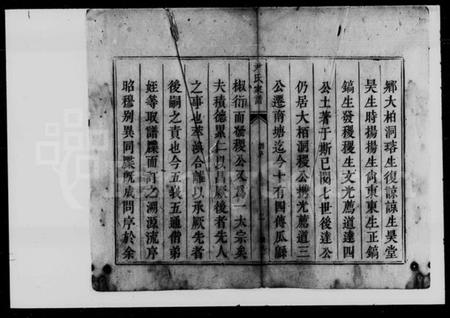 鄉大柏洞琦生復諒諒生昊堂
昊生時揚揚生尚東東生正鎬
鎬生發稷稷生文光薦道達四
公土著于斯已閱七世後達公
仍居大柏洞稷公携光薦道三
公遷南塘迄今十有四傳瓜緜
椒衍而發稷公又爲一大宗矣
尹氏家譜
夫積德累仁以昌厥後者先人
之事也萃渙合離以承厥先者
後嗣之責也今五歲五通偕弟
姪等取譜牒而訂之溯源流序
昭穆别異同牒旣成問序於余